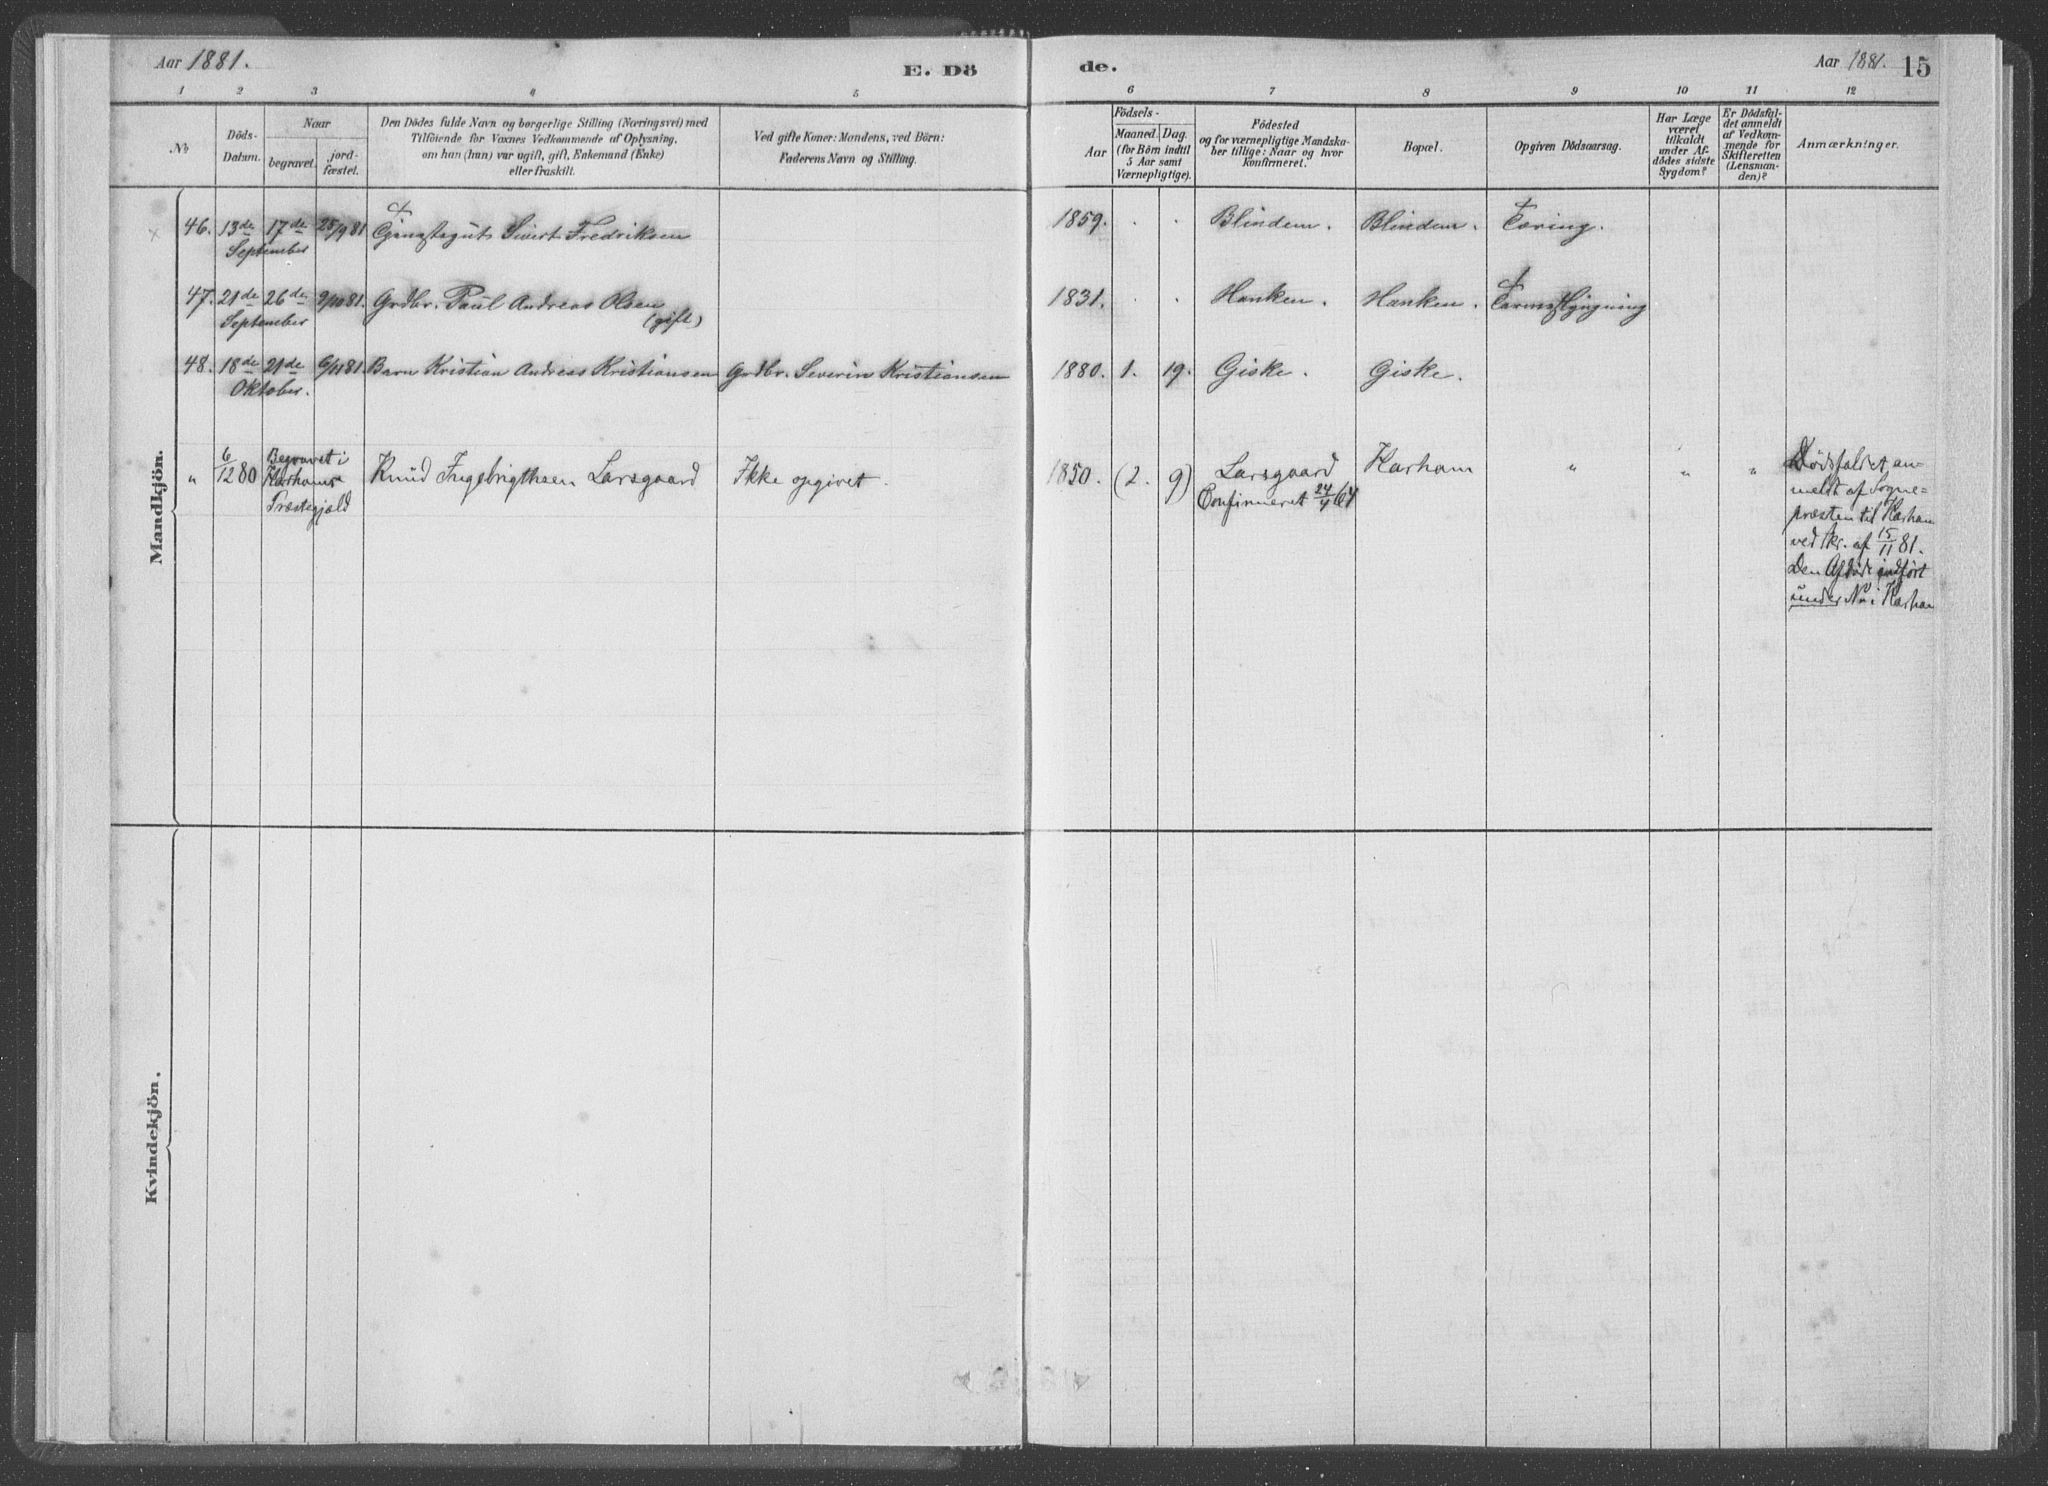 Aar 1881.
E. Dö
de.
Aar 1881.
15
1 2 3 4 5 6 7 8 9 10 11 12
No
Döds-
Datum.
Naar
begravet.
jord-
fæstet.
Den Dödes fulde Navn og borgerlige Stilling (Næringsvei) med
Tilföiende for Voxnes Vedkommende af Oplysning,
om han (hun) var ugift, gift, Enkemand (Enke)
eller fraskilt.
Ved gifte Koner: Mandens, ved Börn:
Faderens Navn og Stilling.
Födsels-
Aar
Maaned.
Dag.
(for Börn indtil
5 Aar samt
Værnepligtige).
Födested
og for værnepligtige Mandska-
ber tillige: Naar og hvor
konfirmeret.
Bopæl.
Opgiven Dödsaarsag.
Har Læge
været
tilkaldt
under Af-
dödes sidste
Sygdom?
Er Dödsfal-
det anmeldt
af Vedkom-
mende for
Skifteretten
(Lensman-
den)?
Anmærkninger.
Mandkjön.
46. 13de September 17de 25/9 81 Tjenestegut Sivert Fredriksen 1859. Blindem. Blindem. Tæring.
47. 21de September 26de 9/10 81. Grdbr. Paul Andreas Olsen (gift) 1831. Hanken. Hanken. Tarmslyngning
48. 18de Oktober. 21de 6/11 81. Barn Kristian Andreas Kristiansen Grdbr. Severin Kristiansen 1880. 1. 19. Giske. Giske.
" 6/12 80 Begravet i Harhams Præstegjæld Knud Ingebrigthsen Larsgaard Ikke opgivet. 1850. (2. 9) Larsgaard Confirmeret 24/4 64 Harham " " "
Dödsfaldet an-
meldt af Sogne-
præsten til Harham
ved skr. af 15/11 81.
Den Afdöde indført
under No i Harham
Kvindekjön.